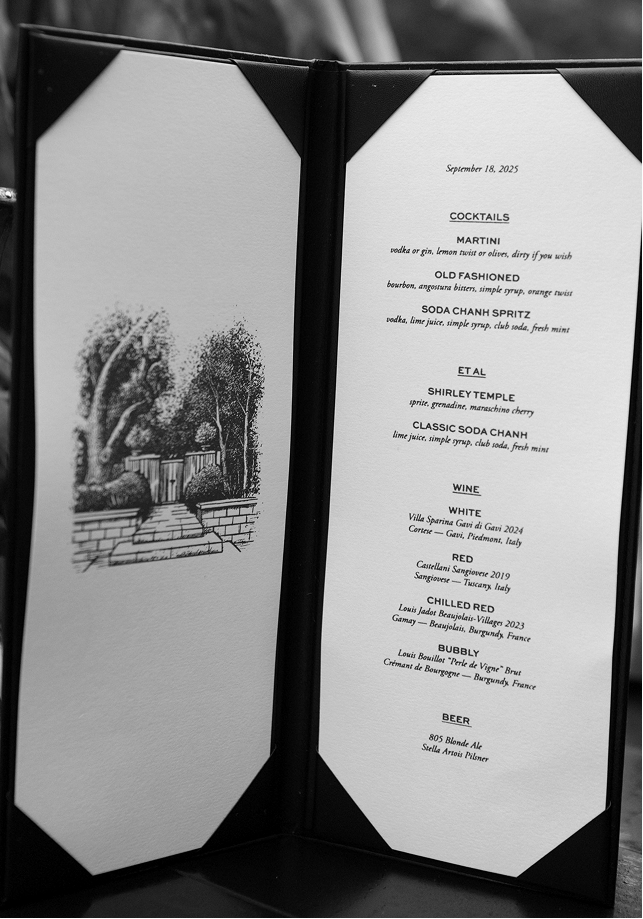 September 18, 2025
COCKTAILS
MARTINI
vodka or gin, lemon twist or olives, dirty if you wish
OLD FASHIONED
bourbon, angostura bitters, simple syrup, orange twist
SODA CHANH SPRITZ
vodka, lime juice, simple syrup, club soda, fresh mint
ET AL
SHIRLEY TEMPLE
sprite, grenadine, maraschino cherry
CLASSIC SODA CHANH
lime juice, simple syrup, club soda, fresh mint
WINE
WHITE
Villa Sparina Gavi di Gavi 2024
Cortese — Gavi, Piedmont, Italy
RED
Castellani Sangiovese 2019
Sangiovese — Tuscany, Italy
CHILLED RED
Louis Jadot Beaujolais-Villages 2023
Gamay — Beaujolais, Burgundy, France
BUBBLY
Louis Bouillot "Perle de Vigne" Brut
Crémant de Bourgogne — Burgundy, France
BEER
805 Blonde Ale
Stella Artois Pilsner